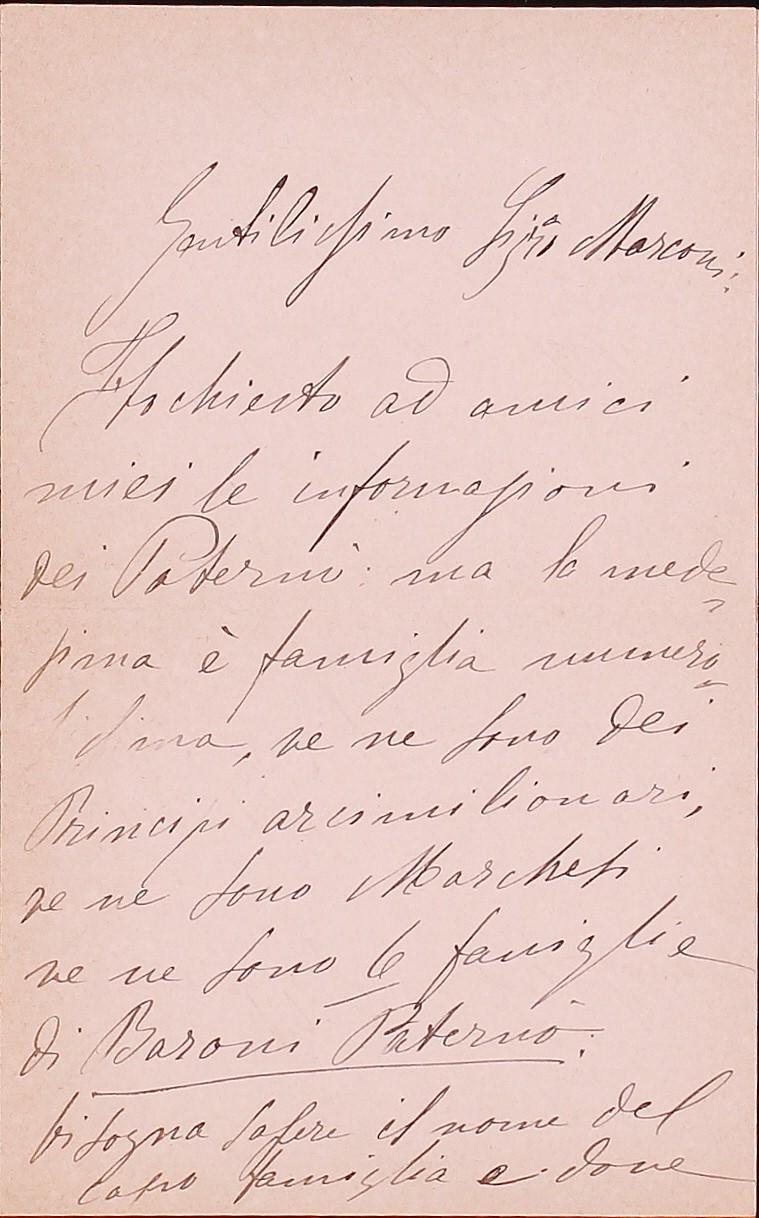 Gentilissimo Sigra Marconi:
Ho chiesto ad amici
miei le informazioni
dei Paternò: ma la mede=
sima è famiglia numero=
sissima, ve ne sono dei
Principi arcimilionari,
ve ne sono Marchesi
ve ne sono 6 famiglie
di Baroni Paternò:
bisogna sapere il nome del
capo famiglia e dove